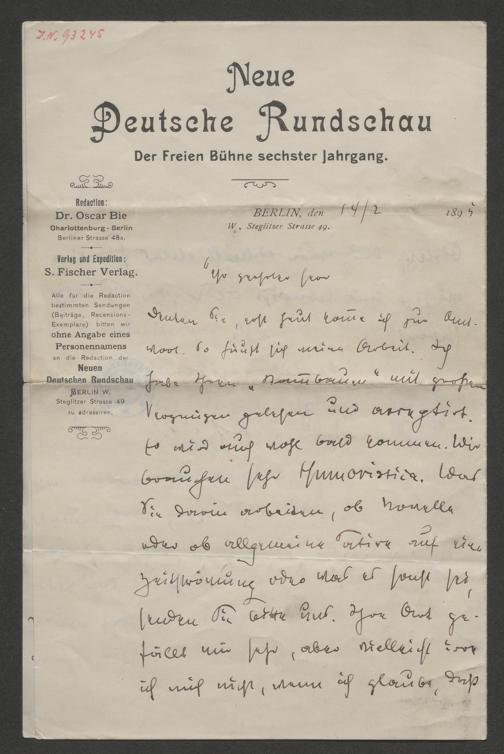 J.N. 93245
Neue
Deutsche Rundschau
Der Freien Bühne sechster Jahrgang.
Redaction:
Dr. Oscar Bie
Charlottenburg-Berlin
Berliner Strasse 48a.
Verlag und Expedition:
S. Fischer Verlag.
Alle für die Redaction
bestimmten Sendungen
(Beiträge, Recensions-
Exemplare) bitten wir
ohne Angabe eines
Personennamens
an die Redaction der
Neuen
Deutschen Rundschau
BERLIN W.
Steglitzer Strasse 49
zu adressiren.
BERLIN, den 14/2 1895
W., Steglitzer Strasse 49.
Sehr geehrter Herr
Denken Sie, erst heut komme ich zur Ant-
wort. So häuft sich meine Arbeit. Ich
habe Ihren mit großem
Vergnügen gelesen und acceptirt.
Er wird auch wohl bald kommen. Wir
brauchen sehr Humoristica. Was
Sie darin arbeiten, ob Novelle
oder ob allgemeine Satire auf eine
Zeitströmung oder was es sonst sei,
senden Sie bitte uns. Ihre Art ge-
fällt mir sehr, aber vielleicht irre
ich mich nicht, wenn ich glaube, daß